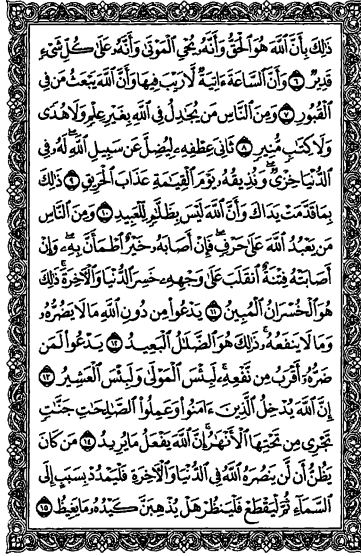 ذَٰلِكَ بِأَنَّ ٱللَّهَ هُوَ ٱلْحَقُّ وَأَنَّهُۥ يُحْىِ ٱلْمَوْتَىٰ وَأَنَّهُۥ عَلَىٰ كُلِّ شَىْءٍ
قَدِيرٌ ٦ وَأَنَّ ٱلسَّاعَةَ ءَاتِيَةٌ لَّا رَيْبَ فِيهَا وَأَنَّ ٱللَّهَ يَبْعَثُ مَن فِى
ٱلْقُبُورِ ٧ وَمِنَ ٱلنَّاسِ مَن يُجَٰدِلُ فِى ٱللَّهِ بِغَيْرِ عِلْمٍ وَلَا هُدًى
وَلَا كِتَٰبٍ مُّنِيرٍ ٨ ثَانِىَ عِطْفِهِۦ لِيُضِلَّ عَن سَبِيلِ ٱللَّهِ لَهُۥ فِى
ٱلدُّنْيَا خِزْىٌ وَنُذِيقُهُۥ يَوْمَ ٱلْقِيَٰمَةِ عَذَابَ ٱلْحَرِيقِ ٩ ذَٰلِكَ
بِمَا قَدَّمَتْ يَدَاكَ وَأَنَّ ٱللَّهَ لَيْسَ بِظَلَّٰمٍ لِّلْعَبِيدِ ١٠ وَمِنَ ٱلنَّاسِ
مَن يَعْبُدُ ٱللَّهَ عَلَىٰ حَرْفٍ فَإِنْ أَصَابَهُۥ خَيْرٌ ٱطْمَأَنَّ بِهِۦ وَإِنْ
أَصَابَتْهُ فِتْنَةٌ ٱنقَلَبَ عَلَىٰ وَجْهِهِۦ خَسِرَ ٱلدُّنْيَا وَٱلْءَاخِرَةَ ذَٰلِكَ
هُوَ ٱلْخُسْرَانُ ٱلْمُبِينُ ١١ يَدْعُوا۟ مِن دُونِ ٱللَّهِ مَا لَا يَضُرُّهُۥ
وَمَا لَا يَنفَعُهُۥ ذَٰلِكَ هُوَ ٱلضَّلَٰلُ ٱلْبَعِيدُ ١٢ يَدْعُوا۟ لَمَن
ضَرُّهُۥٓ أَقْرَبُ مِن نَّفْعِهِۦ لَبِئْسَ ٱلْمَوْلَىٰ وَلَبِئْسَ ٱلْعَشِيرُ ١٣
إِنَّ ٱللَّهَ يُدْخِلُ ٱلَّذِينَ ءَامَنُوا۟ وَعَمِلُوا۟ ٱلصَّٰلِحَٰتِ جَنَّٰتٍ
تَجْرِى مِن تَحْتِهَا ٱلْأَنْهَٰرُ إِنَّ ٱللَّهَ يَفْعَلُ مَا يُرِيدُ ١٤ مَن كَانَ
يَظُنُّ أَن لَّن يَنصُرَهُ ٱللَّهُ فِى ٱلدُّنْيَا وَٱلْءَاخِرَةِ فَلْيَمْدُدْ بِسَبَبٍ إِلَى
ٱلسَّمَآءِ ثُمَّ لْيَقْطَعْ فَلْيَنظُرْ هَلْ يُذْهِبَنَّ كَيْدُهُۥ مَا يَغِيظُ ١٥